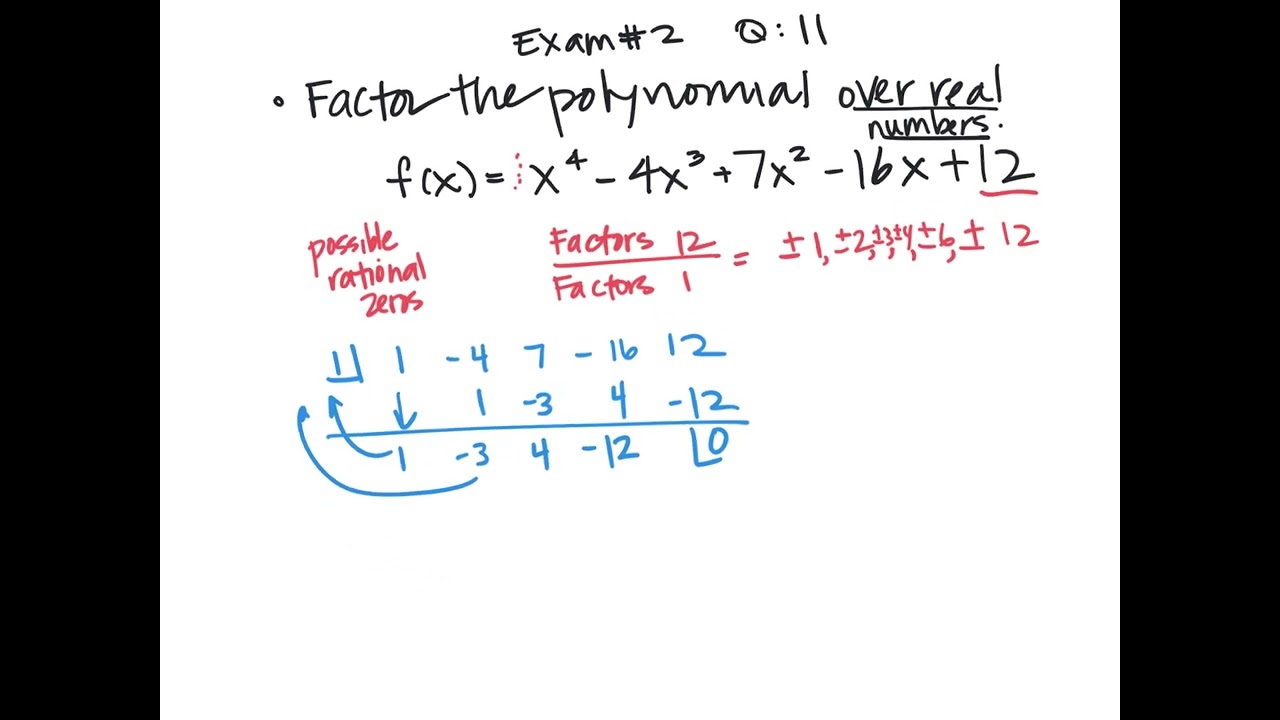 Exam#2 Q:11
• Factor the polynomial over real
numbers.
f(x) = x⁴ - 4x³ + 7x² - 16x + 12
possible
rational
zeros
Factors 12
Factors 1
= ±1, ±2, ±3, ±4, ±6, ± 12
1 1 -4 7 -16 12
1 -3 4 -12
1 -3 4 -12 0